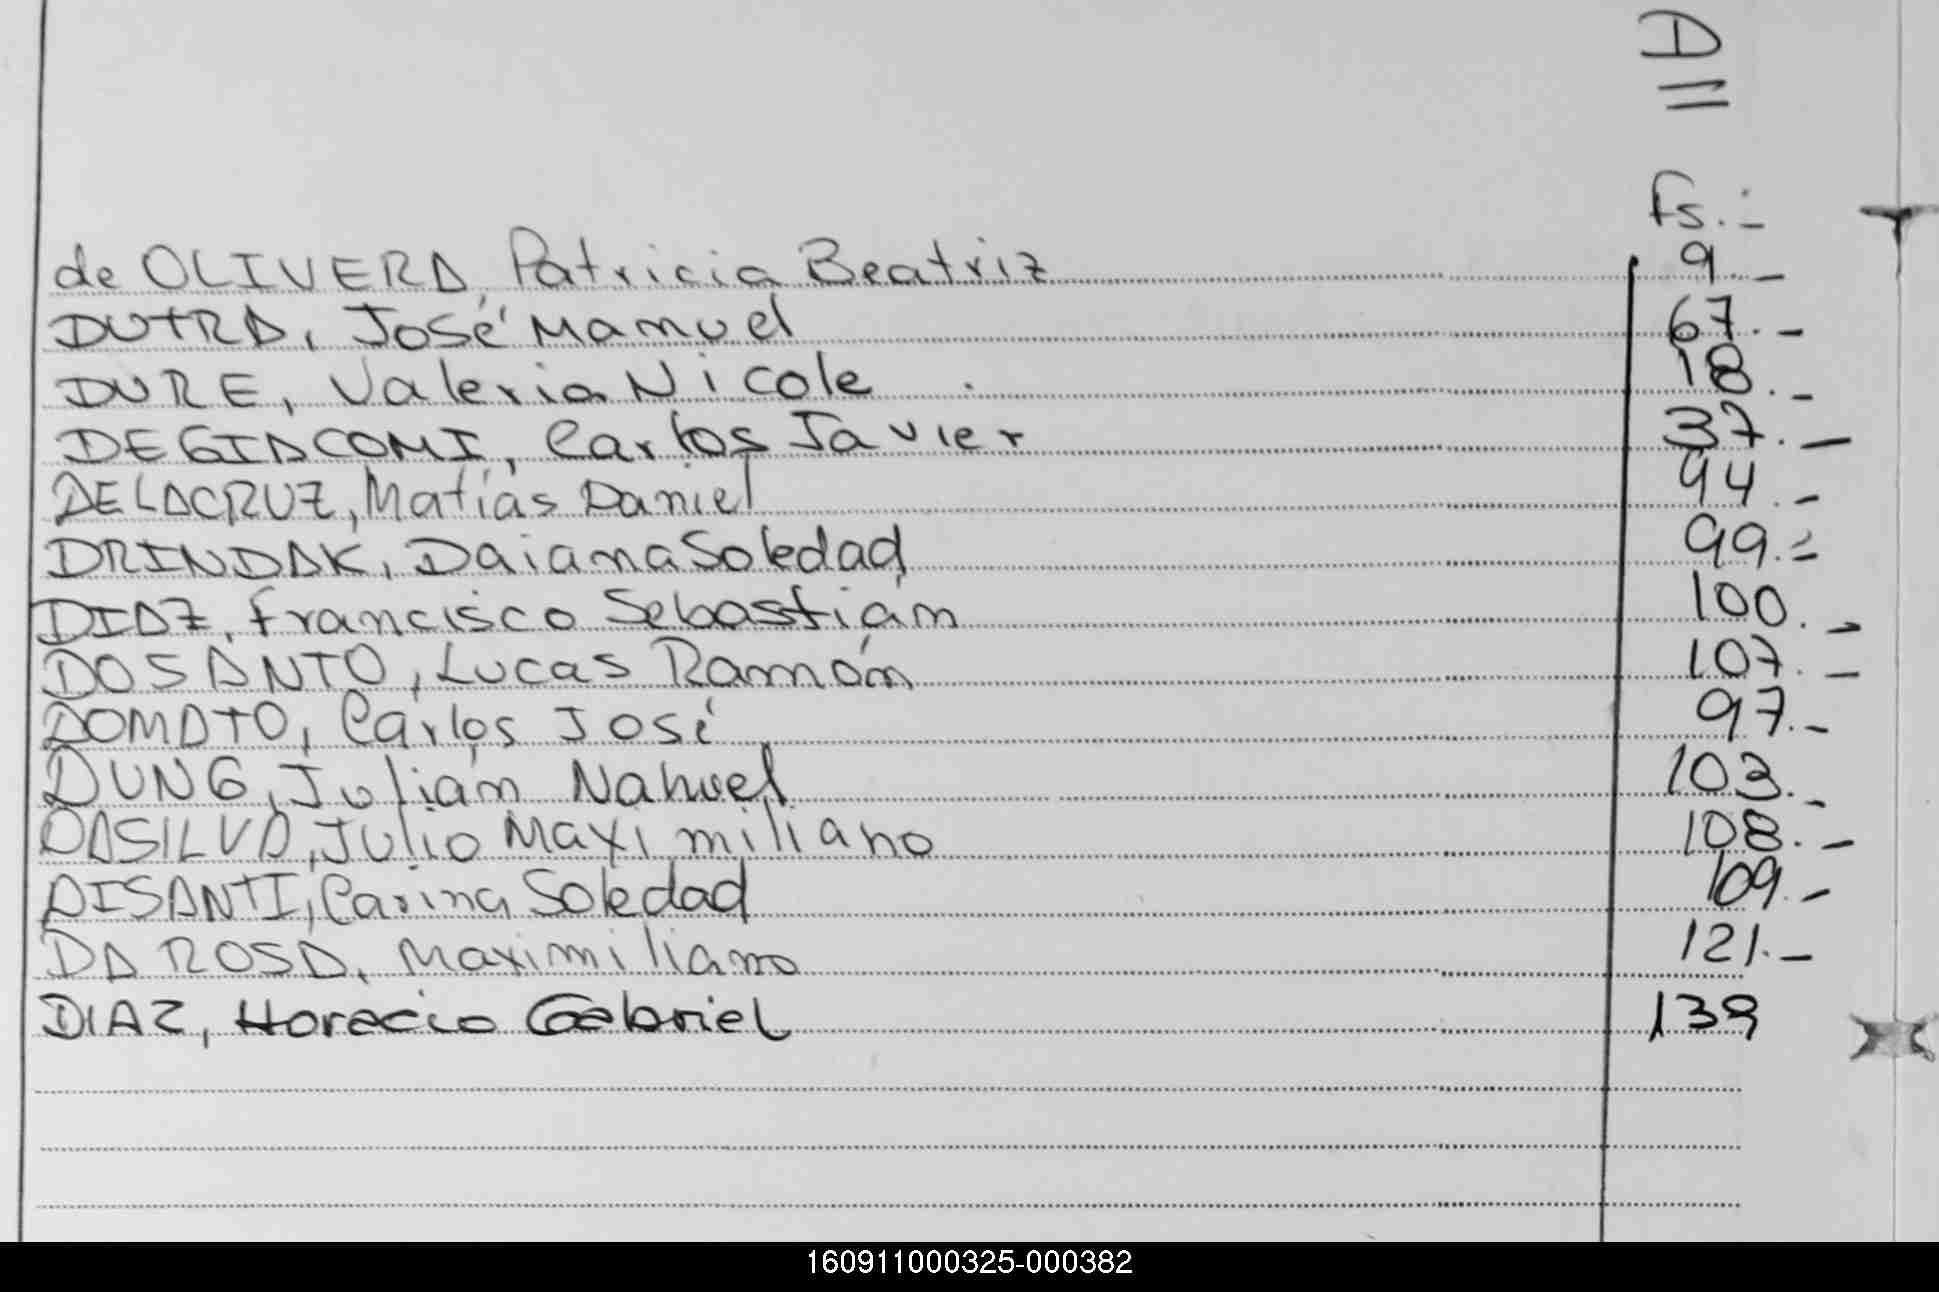 D
Fs.-
de OLIVERA, Patricia Beatriz 9.-
DUTRA, José Manuel 67.-
DURE, Valeria Nicole 18.-
DEGIACOMI, Carlos Javier 37.-
DELACRUZ, Matías Daniel 94.-
DRINDAK, Daiana Soledad 99.-
DIAZ, Francisco Sebastián 100.-
DOSANTO, Lucas Ramón 107.-
DOMATO, Carlos José 97.-
DUNG, Julián Nahuel 103.-
DASILVA, Julio Maximiliano 108.-
DISANTI, Carina Soledad 109.-
DA ROSA, Maximiliano 121.-
DIAZ, Horacio Gabriel 139
160911000325-000382